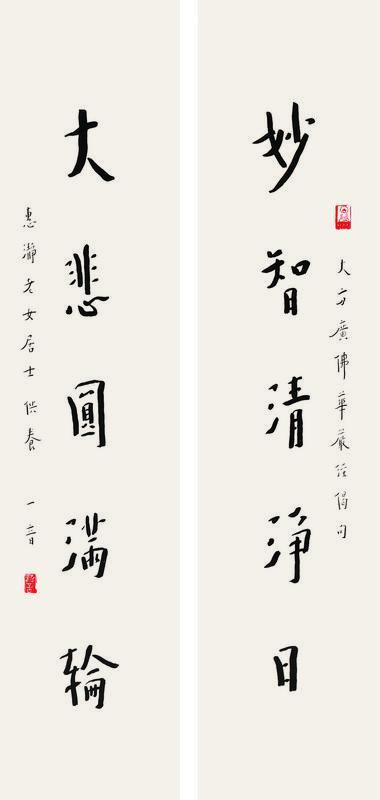 大方廣佛華嚴經偈句
妙智清淨日
大悲圓滿輪
惠瀞女居士供養 一音